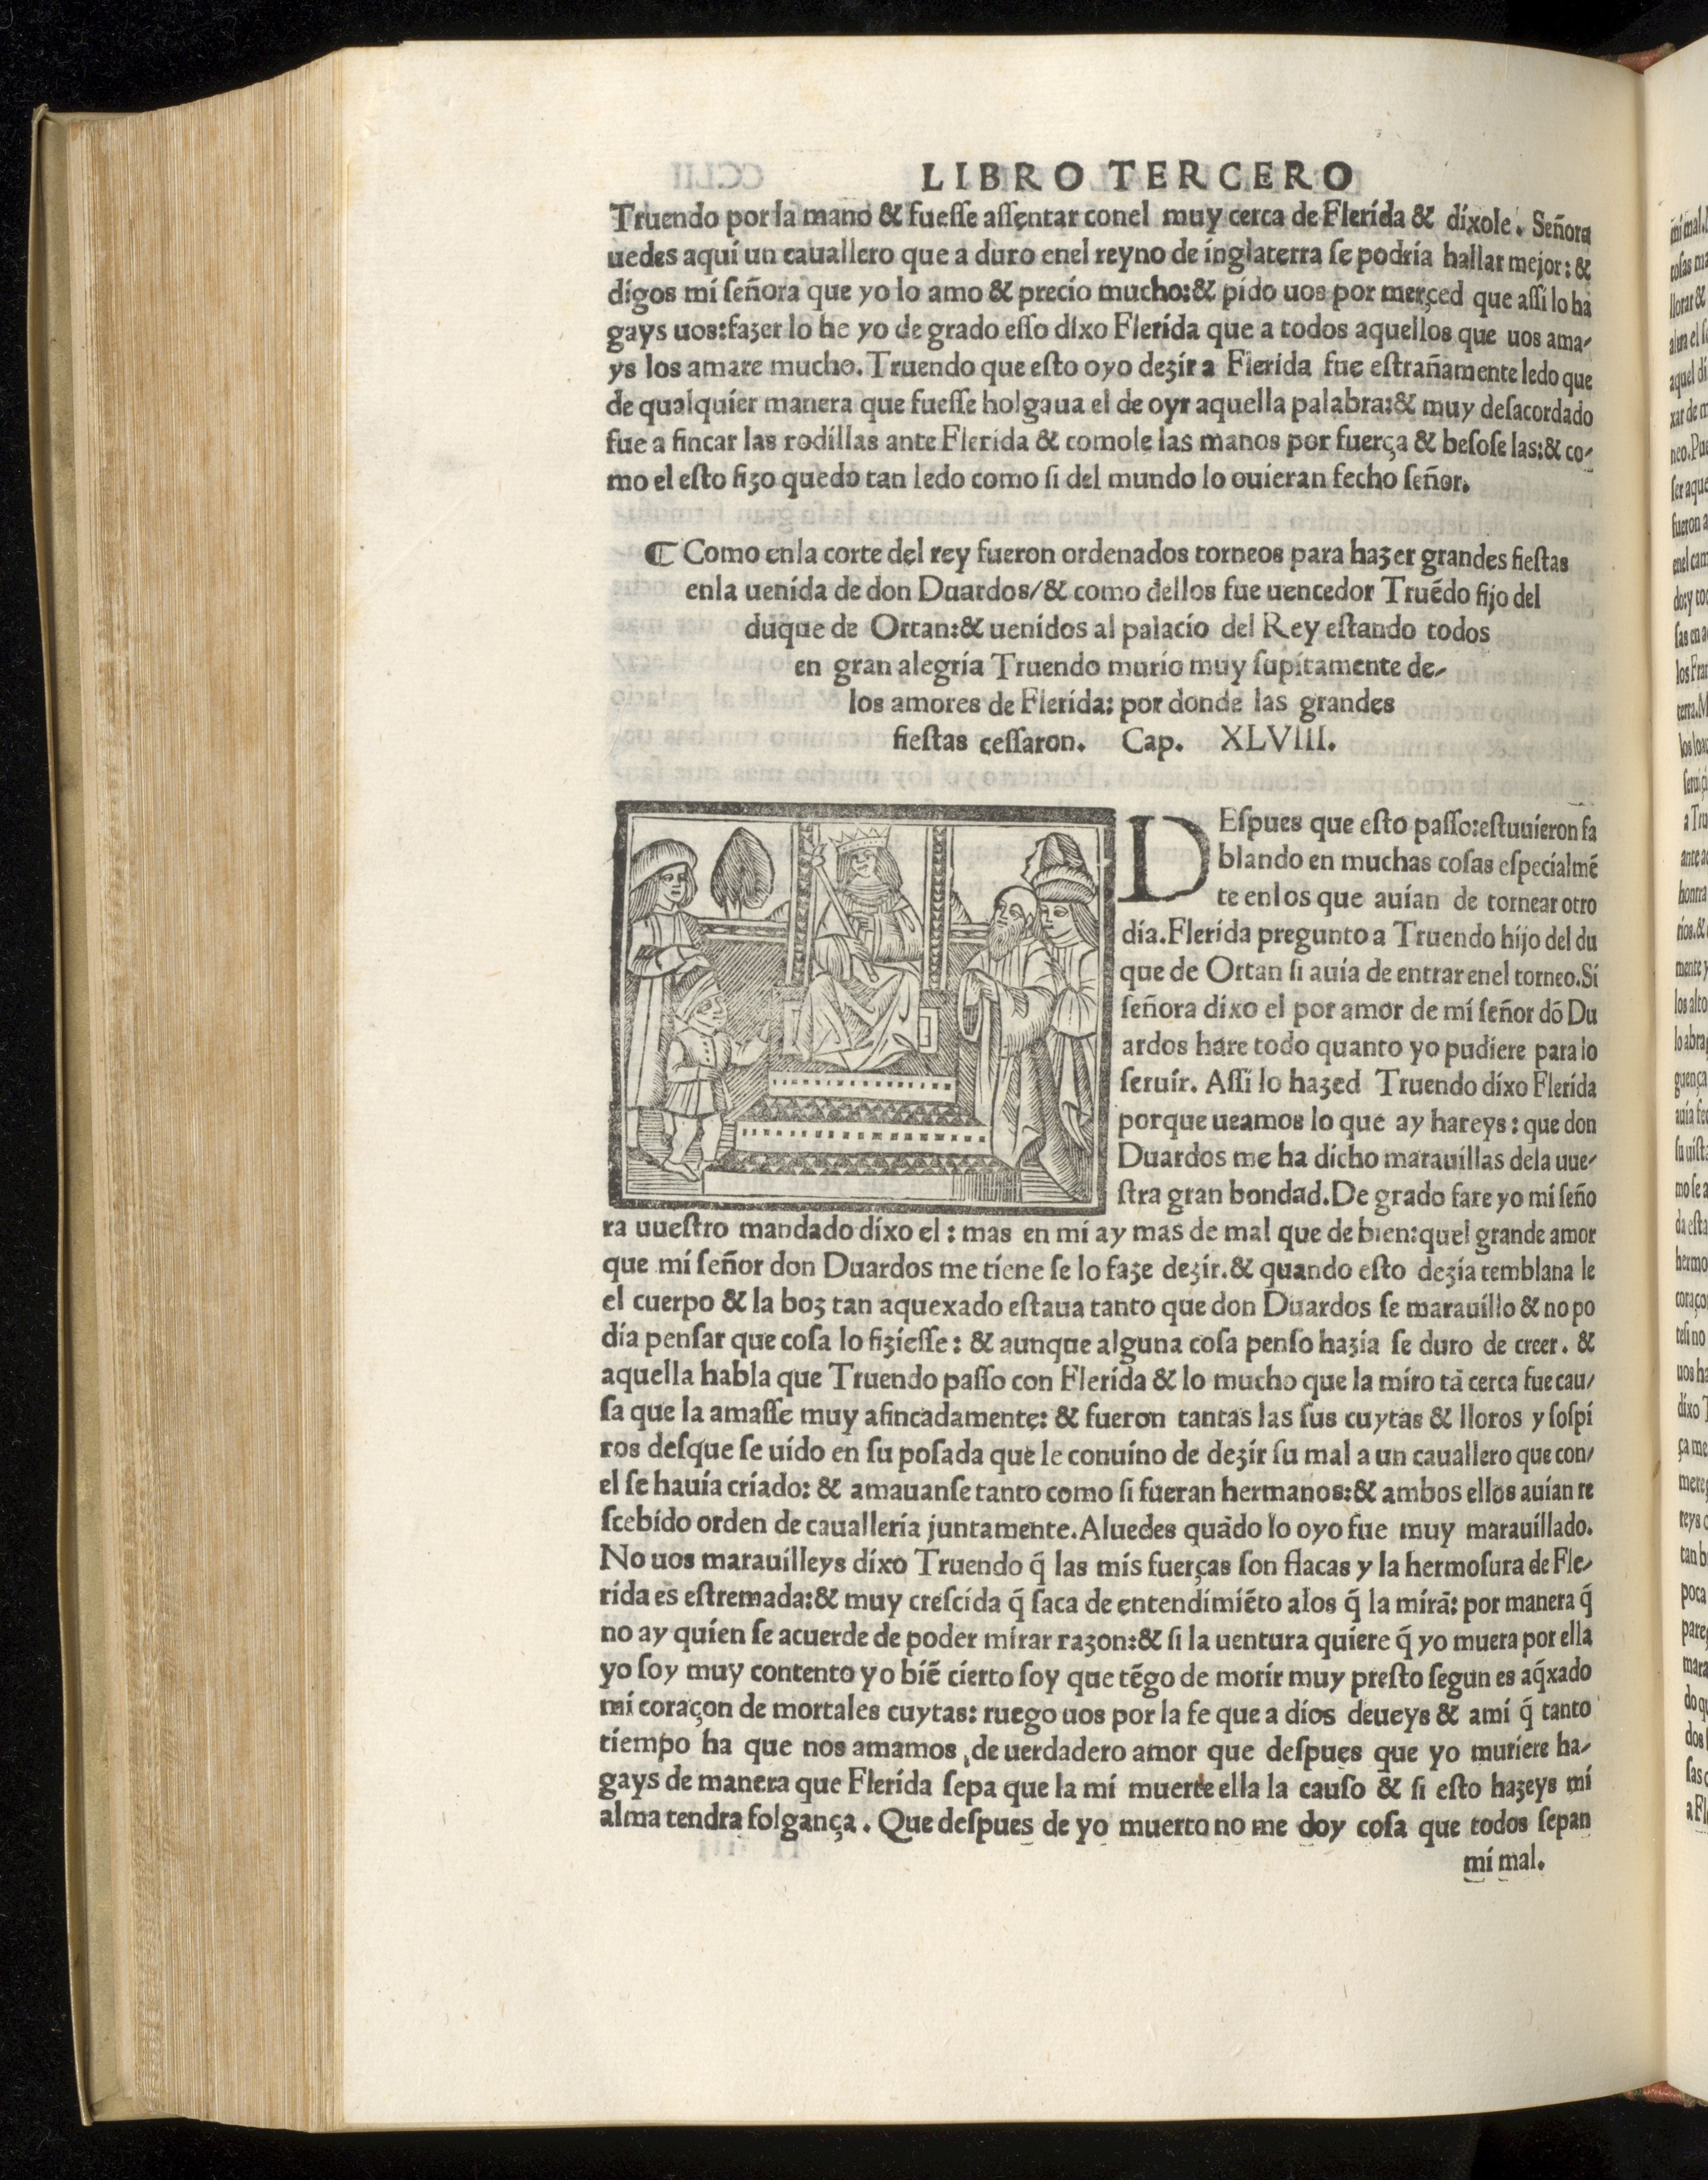 LIBRO TERCERO
Truendo por la mano & fueſſe aſſentar conel muy cerca de Flerida & dixole. Señora
uedes aqui un cauallero que a duro enel reyno de inglaterra ſe podria hallar mejor: &
digos mi ſeñora que yo lo amo & precio mucho:& pido uos por merçed que aſſi lo ha
gays uos:faʒer lo he yo de grado eſſo dixo Flerida que a todos aquellos que uos ama-
ys los amare mucho. Truendo que eſto oyo deʒir a Flerida fue eſtrañamente ledo que
de qualquier manera que fueſſe holgaua el de oyr aquella palabra:& muy deſacordado
fue a fincar las rodillas ante Flerida & comole las manos por fuerça & beſoſe las:& co-
mo el eſto fiʒo quedo tan ledo como ſi del mundo lo ouieran fecho ſeñor.
¶ Como enla corte del rey fueron ordenados torneos para haʒer grandes fieſtas
enla uenida de don Duardos/& como dellos fue uencedor Truēdo fijo del
duque de Ortan:& uenidos al palacio del Rey eſtando todos
en gran alegria Truendo murio muy ſupitamente de-
los amores de Flerida: por donde las grandes
fieſtas ceſſaron. Cap. XLVIII.
DEſpues que eſto paſſo:eſtuuieron fa
blando en muchas coſas eſpecialmē
te enlos que auian de tornear otro
dia.Flerida pregunto a Truendo hijo del du
que de Ortan ſi auia de entrar enel torneo.Si
ſeñora dixo el por amor de mi ſeñor dō Du
ardos hare todo quanto yo pudiere para lo
ſeruir. Aſſi lo haʒed Truendo dixo Flerida
porque ueamos lo que ay hareys: que don
Duardos me ha dicho marauillas dela uue-
ſtra gran bondad.De grado fare yo mi ſeño
ra uueſtro mandado dixo el: mas en mi ay mas de mal que de bien:quel grande amor
que mi ſeñor don Duardos me tiene ſe lo faʒe deʒir.& quando eſto deʒia temblana le
el cuerpo & la boʒ tan aquexado eſtaua tanto que don Duardos ſe marauillo & no po
dia penſar que coſa lo fiʒieſſe: & aunque alguna coſa penſo haʒia ſe duro de creer. &
aquella habla que Truendo paſſo con Flerida & lo mucho que la miro tā cerca fue cau/
ſa que la amaſſe muy afincadamente: & fueron tantas las ſus cuytas & lloros y ſoſpi
ros deſque ſe uido en ſu poſada que le conuino de deʒir ſu mal a un cauallero que con/
el ſe hauia criado: & amauanſe tanto como ſi fueran hermanos:& ambos ellos auian re
ſcebido orden de caualleria juntamente.Aluedes quādo lo oyo fue muy marauillado.
No uos marauilleys dixo Truendo q̄ las mis fuerças ſon flacas y la hermoſura de Fle-
rida es eſtremada:& muy creſcida q̄ ſaca de entendimiēto alos q̄ la mirā: por manera q̄
no ay quien ſe acuerde de poder mirar raʒon:& ſi la uentura quiere q̄ yo muera por ella
yo ſoy muy contento yo biē cierto ſoy que tēgo de morir muy preſto ſegun es aq̄xado
mi coraçon de mortales cuytas: ruego uos por la fe que a dios deueys & ami q̄ tanto
tiempo ha que nos amamos de uerdadero amor que deſpues que yo muriere ha-
gays de manera que Flerida ſepa que la mi muerte ella la cauſo & ſi eſto haʒeys mi
alma tendra folgança. Que deſpues de yo muerto no me doy coſa que todos ſepan
mi mal.